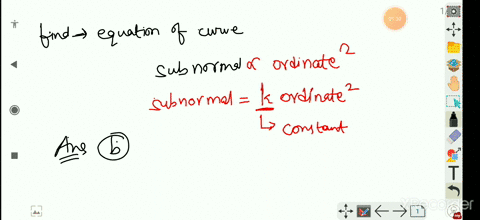 find → equation of curve
subnormal ∝ ordinate²
subnormal = k ordinate²
↳ constant
Ans (b)